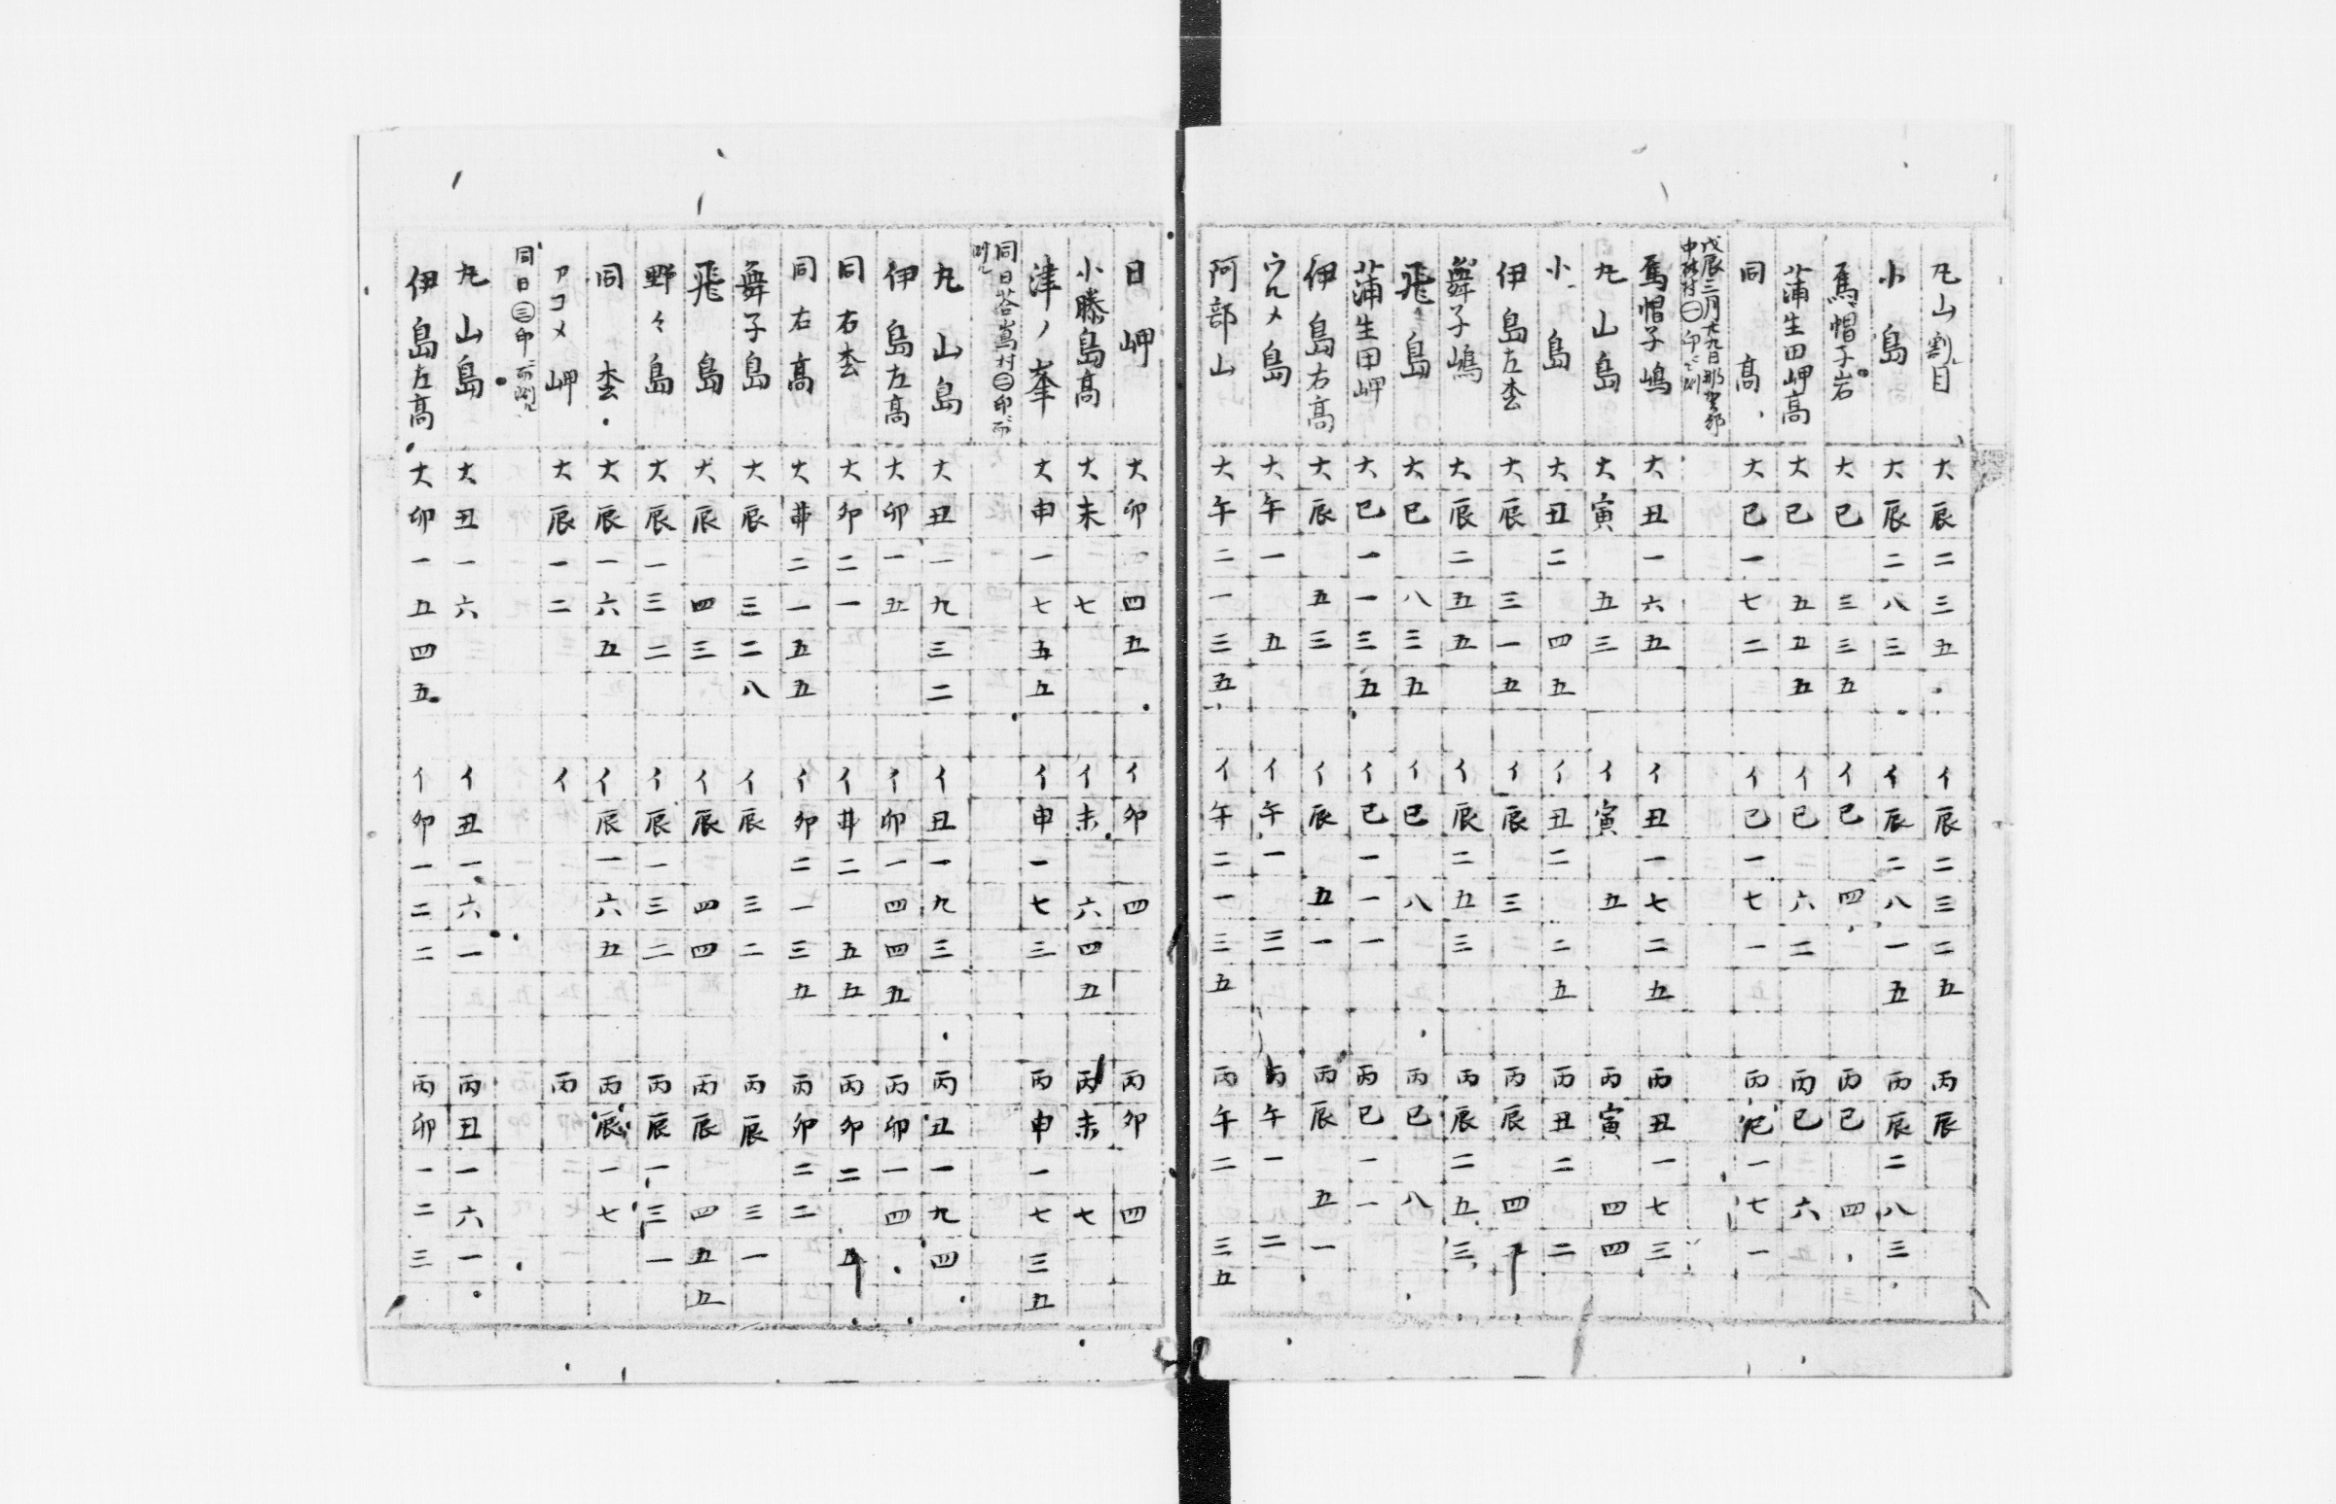 丸山割目 大辰二三五 イ辰二三二五 丙辰
小島 大辰二八三 イ辰二八一五 丙辰二八三
烏帽子岩 大巳三三五 イ巳四 丙巳四
蒲生田岬高 大巳五五五 イ巳六二 丙巳六
同高 大巳一七二 イ巳一七一 丙巳一七一
戊辰三月廿九日那賀郡
中林村㊀印ニ測
烏帽子嶋 大丑一六五 イ丑一七二五 丙丑一七三
丸山島 大寅五三 イ寅五 丙寅四四
小島 大丑二四五 イ丑二二五 丙丑二二
伊島左杢 大辰三一五 イ辰三 丙辰四
舞子嶋 大辰二五五 イ辰二五三 丙辰二五三
飛島 大巳八三五 イ巳八 丙巳八
蒲生田岬 大巳一一三五 イ巳一一一 丙巳一一
伊島右高 大辰五三 イ辰五一 丙辰五一
大午一五 イ午一三 丙午一二
阿部山 大午二一三五 イ午二一三五 丙午二三五
日岬 大卯四五 イ卯四 丙卯四
小勝島高 大未七 イ未六四五 丙未七
津ノ峯 大申一七五五 イ申一七三 丙申一七三五
同日荅嶌村㊁印ニ而
測ル
丸山島 大丑一九三二 イ丑一九三 丙丑一九四
伊島左高 大卯一五 イ卯一四四五 丙卯一四
同右杢 大卯二一 イ卯二五五 丙卯二五
同右高 大卯二一五五 イ卯二一三五 丙卯二二
舞子島 大辰三二八 イ辰三二 丙辰三一
飛島 大辰四三 イ辰四四 丙辰四五五
野々島 大辰一三二 イ辰一三二 丙辰一三一
同杢 大辰一六五 イ辰一六五 丙辰一七
アコメ岬 大辰一二 イ 丙
同日㊂印ニ而測ル
丸山島 大丑一六 イ丑一六一 丙丑一六一
伊島左高 大卯一五四五 イ卯一二二 丙卯一二三